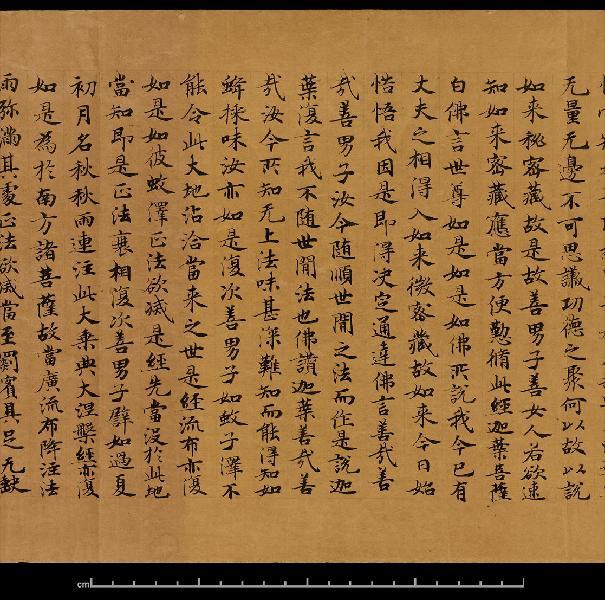 无量无邊不可思議功德之聚何以故以說
如来秘密藏故是故善男子善女人若欲速
知如来密藏應當方便懃脩此經迦葉菩薩
白佛言世尊如是如是如佛所說我今已有
丈夫之相得入如来微密藏故如来今日始
悟我因是即得决定通達佛言善哉善
哉善男子汝今随順世間之法而作是說迦
葉復言我不随世間法也佛讃迦葉善哉善
哉汝今所知无上法味甚深難知而能得知如
蜂採味汝亦如是復次善男子如蚊子澤不
能令此大地沾洽當来之世是經流布亦復
如是如彼蚊澤正法欲滅是經先當没於此地
當知即是正法衰相復次善男子譬如過夏
初月名秋秋雨連注此大乗典大涅槃經亦復
如是為於南方諸菩薩故當廣流布降注法
雨弥満其處正法欲滅當至罽賓具足无缺
cm